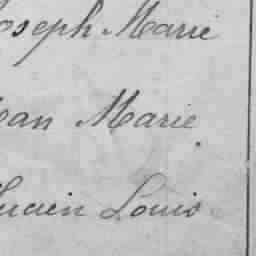 Joseph Marie
Jean Marie
Lucien Louis